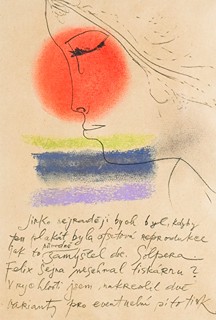 Jinko nejraději bych byl, kdyby
ten plakát byla ofsetová reprodukce
jak to původně zamýšlel dr. Golpera.
Felix Sejna nesehnal tiskárnu?
V rychlosti jsem nakreslil dvě
varianty pro eventuelní sítotisk